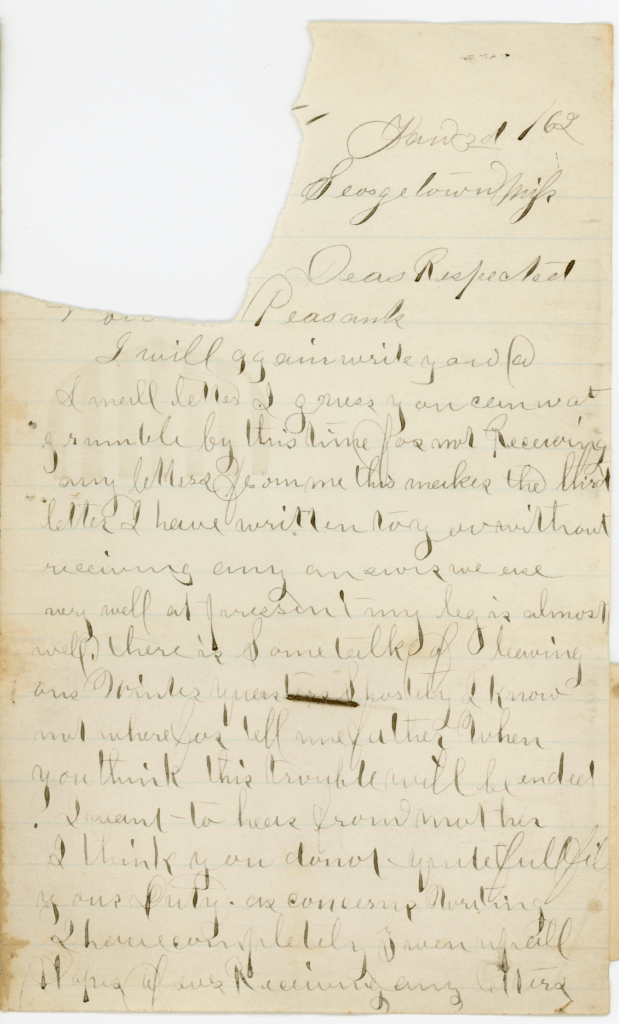 Jan 3d /62
Georgetown Miss
Dear Respected
Pearants
I will again write you (a
Small letter I guess you can not
grumble by this time for not Receiving
any letters from me this makes the third
letter I have written to you without
receiving any answer we are
very well at pressent my leg is almost
well. there is Some talk of leaving
our Winter quarters Shortly I know
not where for tell me father When
you think this trouble will be ended
I want to hear from mother
I think you do not quite full fil
your Duty. as concerns Writing
I have completely given up all
Hopes of ever Receiving any letters